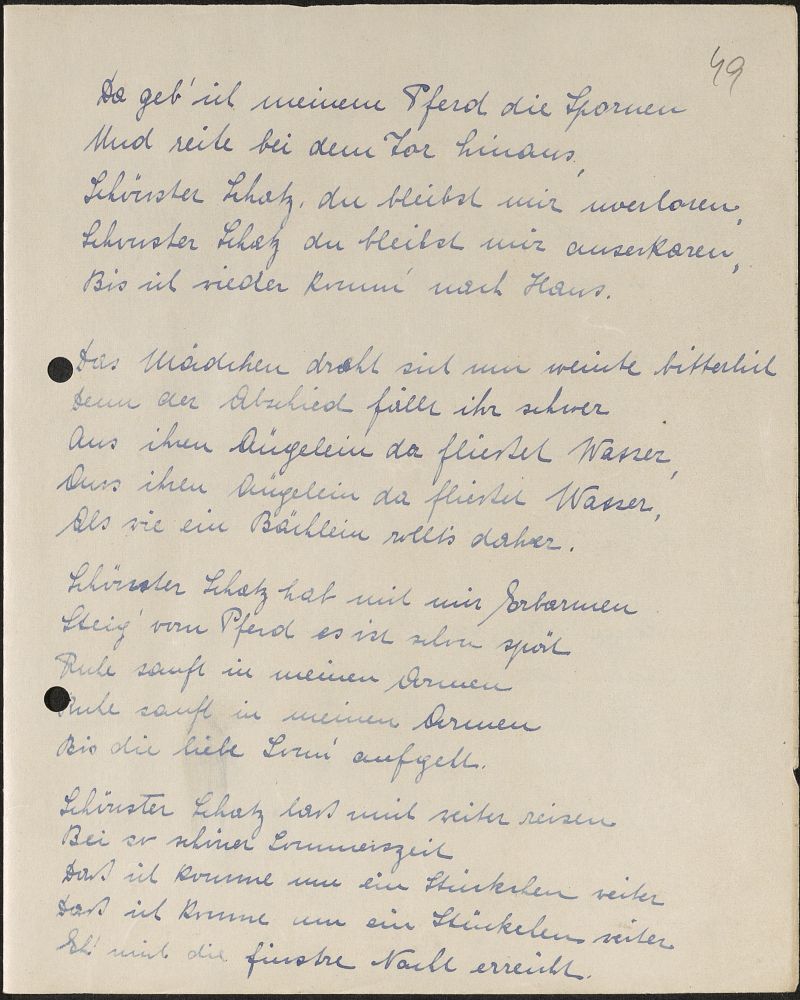 49
Da geb' ich meinem Pferd die Spornen
Und reite bei dem Tor hinaus,
Schönster Schatz, du bleibst mir unverloren,
Schönster Schatz du bleibst mir auserkoren,
Bis ich wieder komm' nach Haus.
Das Mädchen draht sich um weinte bitterlich
Denn der Abschied fällt ihr schwer
Aus ihren Äügelein da fließet Wasser,
Auss ihren Äügelein da fließet Wasser,
Als wie ein Bächlein rollt's daher.
Schönster Schatz hab mit mir Erbarmen
Steig' vom Pferd es ist schon spät
Ruhe sanft in meinen Armen
Ruhe sanft in meinen Armen
Bis die liebe Sonn' aufgeht.
Schönster Schatz laß mich weiter reisen
Bei so schöner Sommerszeit
Daß ich komme um ein Stückchen weiter
Daß ich komme um ein Stückchen weiter
Eh' mich die finstre Nacht erreicht.